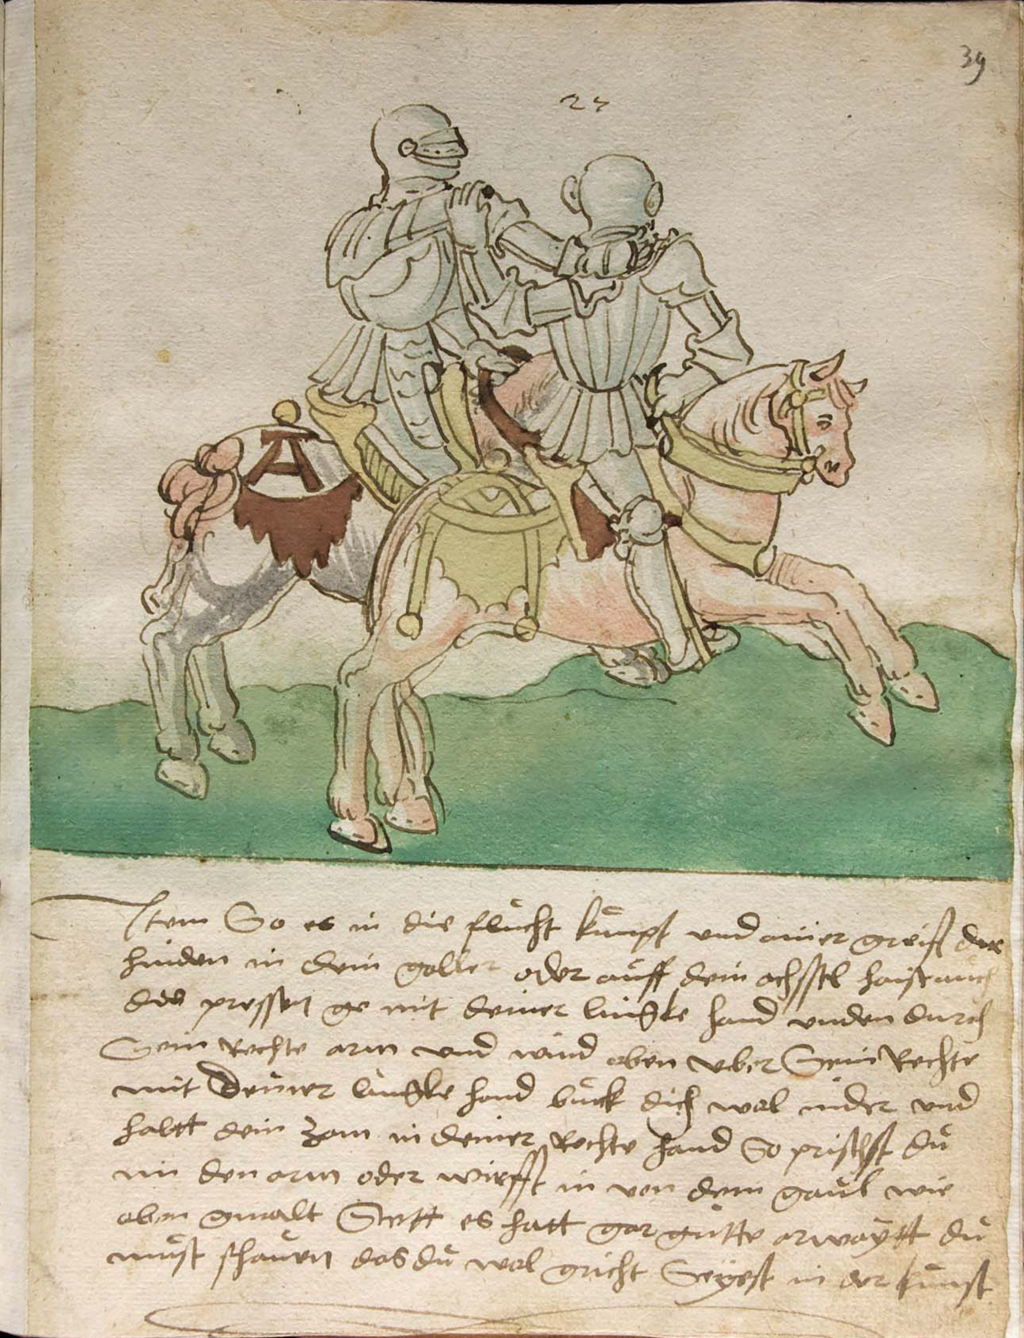 39
23
Item So es in die flucht kumpst und ainer greift dir
hinden in dein goller oder auff dein achsstl haist auch
das pressen ge mit deiner lingke hand unden durch
Sein Rechte arm und wind oben uber Sein Rechte
mit Deiner lingke hand buck dich wol nider und
haltt dein zam in deiner Rechte hand So prichst du
im den arm oder wirfst in von dem gaul wie
oben gmalt Stett es hatt gar gutte arwaytt du
must schauen das du wol gricht Seyest in der kunst